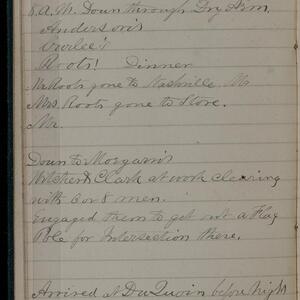 8. A.M. Down through Dry Arm,
Anderson's
Roots! Dinner
Mr Roots gone to Nashville Mr
Mrs. Roots gone to Store.
Mr.
Down to Morgan's
Clark at work clearing
with 6 or 8 men.
engaged them to get out a Flag
Pole for Intersection there.
Arrived at DuQuoin before night